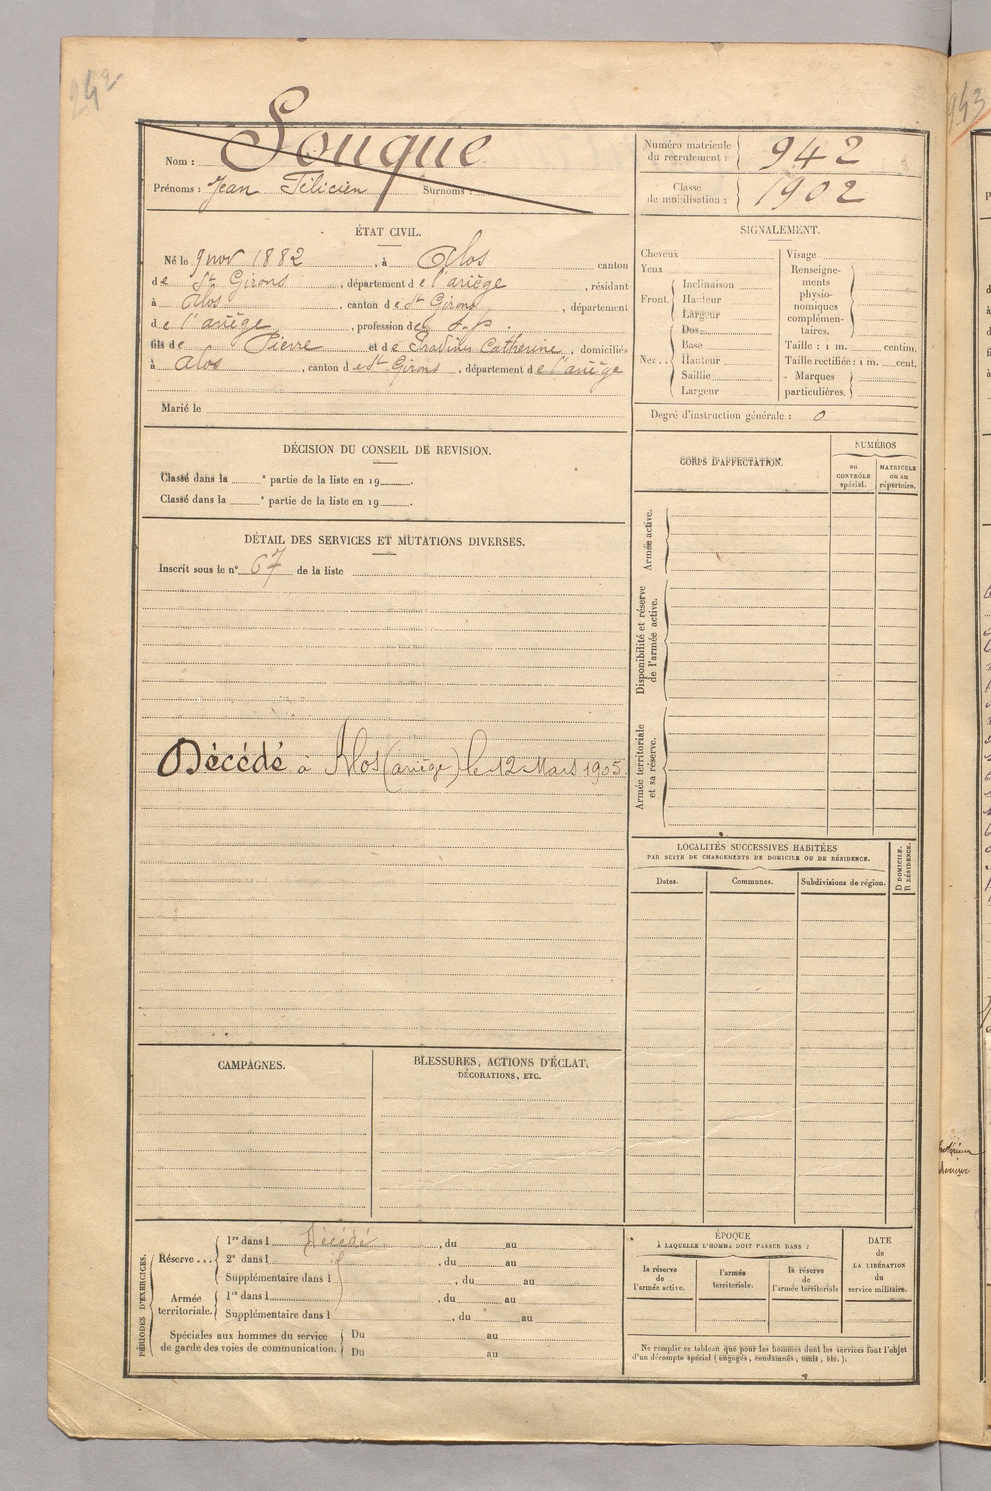 942
943
Nom : Souque
Prénoms : Jean Félicien Surnoms :
Numéro matricule du recrutement : 942
Classe de mobilisation : 1902
ÉTAT CIVIL.
Né le 9 nov 1882, à Alos canton
de St Girons, département de l'ariège, résidant
à Alos, canton de St Girons, département
de l'ariège, profession de s.p.
fils de Pierre et de Catherine, domiciliés
à Alos, canton de St Girons, département de l'ariège
Marié le
SIGNALEMENT.
Cheveux
Yeux
Front. Inclinaison
Hauteur
Largeur
Nez.. Dos
Base
Hauteur
Saillie
Largeur
Visage
Renseignements physionomiques complémentaires.
Taille : 1 m. centim.
Taille rectifiée : 1 m. cent.
Marques particulières.
Degré d'instruction générale : 0
DÉCISION DU CONSEIL DE REVISION.
Classé dans la e partie de la liste en 19 .
Classé dans la e partie de la liste en 19 .
CORPS D'AFFECTATION.
NUMÉROS
au CONTRÔLE spécial.
MATRICULE ou au répertoire.
Armée active.
Disponibilité et réserve de l'armée active.
Armée territoriale et sa réserve.
DÉTAIL DES SERVICES ET MUTATIONS DIVERSES.
Inscrit sous le n° 67 de la liste
Décédé à Alos (ariège) le 12 Mars 1905
LOCALITÉS SUCCESSIVES HABITÉES
PAR SUITE DE CHANGEMENTS DE DOMICILE OU DE RÉSIDENCE.
Dates.
Communes.
Subdivisions de région.
D DOMICILE.
R RÉSIDENCE.
CAMPAGNES.
BLESSURES, ACTIONS D'ÉCLAT,
DÉCORATIONS, ETC.
PÉRIODES D'EXERCICES.
Réserve... 1re dans l Décédé, du au
2e dans l , du au
Supplémentaire dans l , du au
Armée territoriale. 1re dans l , du au
Supplémentaire dans l , du au
Spéciales aux hommes du service de garde des voies de communication. Du au
Du au
ÉPOQUE
À LAQUELLE L'HOMME DOIT PASSER DANS :
la réserve de l'armée active.
l'armée territoriale.
la réserve de l'armée territoriale
DATE de LA LIBÉRATION du service militaire.
Ne remplir ce tableau que pour les hommes dont les services font l'objet
d'un décompte spécial (engagés, condamnés, omis, etc.).